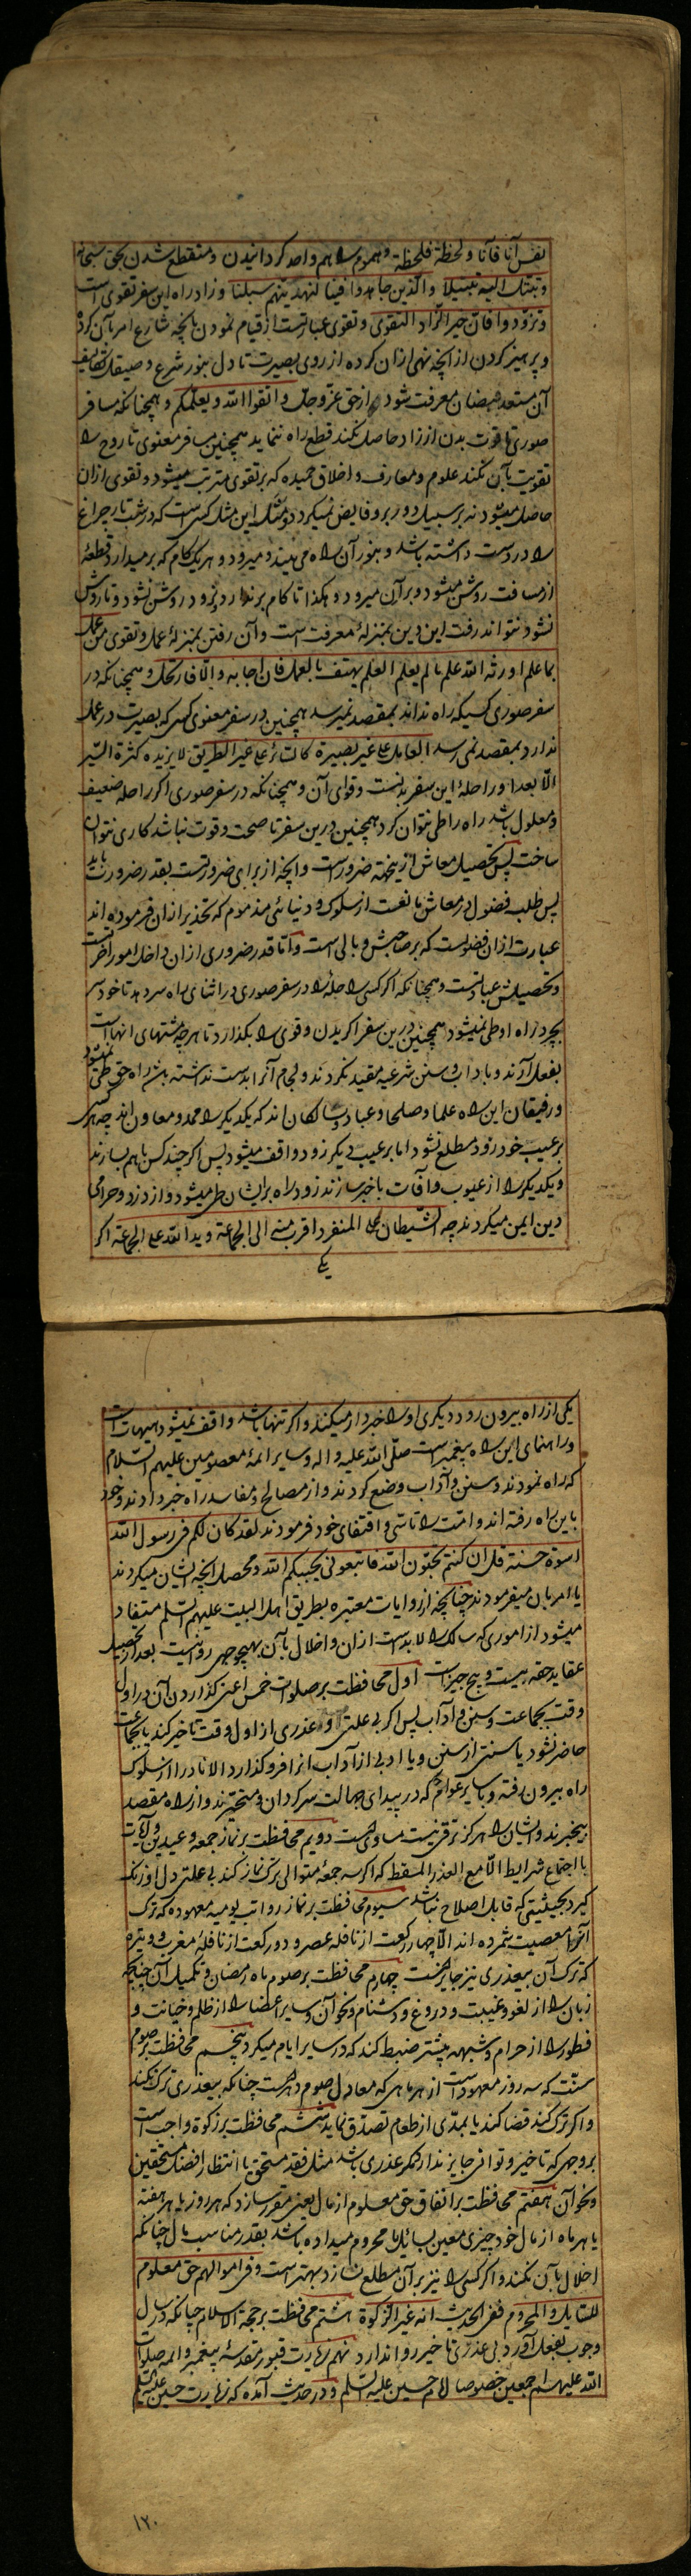 نفس آنا فآنا و لحظة فلحظة و هموم را هم واحد کردانیدن و منقطع شدن بحق سبحانه
و تبتل الیه تبتیلا و الذین جاهدوا فینا لنهدینهم سبلنا و زاد راه این سفر تقوی است
و تزودوا فان خیر الزاد التقوی و تقوی عبارتست از قیام نمودن بانچه شارع امر بآن کرده
و پرهیز کردن از انچه نهی ازان کرده از روی بصیرت تا دل بنور شرع و صیقل تکالیف
آن مستعد فیضان معرفت شود از حق عز و جل و اتقوا الله و یعلمکم و همچنانکه مسافر
صوری تا قوت بدن از زاد حاصل نکند قطع راه نتماید همچنین مسافر معنوی تا روح را
تقویت بآن نکند علوم و معارف و اخلاق حمیده که بر تقوی مترتب میشود و تقوی ازان
حاصل میشود نه بر سبیل دور برو فایض نمیکردد و مثل این مثل کسی است که در شب تار چراغ
را در دست داشته باشد و بنور آن راه می بیند و میرود و هر یک کام که بر میدارد قطعهٔ
از مسافت روشن میشود و بر آن میرود و هکذا تا کام بر ندارد و نرود روشن نشود و تا روشن
نشود نتواند رفت این دیدن بمنزلهٔ معرفت است و آن رفتن بمنزلهٔ عمل و تقوی من عمل
بما علم اورثه الله علم ما لم یعلم العلم یهتف بالعمل فان اجابه و الا فارتحل و همچنانکه در
سفر صوری کسیکه راه نداند بمقصد نمیرسد همچنین در سفر معنوی کسی که بصیرت در عمل
ندارد بمقصد نمی رسد العامل علی غیر بصیرة کالسائر علی غیر الطریق لا یزیده کثرة السیر
الا بعدا و راحلهٔ این سفر بدنست و قوای آن و همچنانکه در سفر صوری اکر راحله ضعیف
و معلول باشد راه را طی نتوان کرد همچنین درین سفر تا صحت و قوت نباشد کاری نتوان
ساخت پس تحصیل معاش ازینجهة ضرور است و انچه از برای ضرورتست بقدر ضرورت باید
پس طلب فضول در معاش مانعست از سلوک و دنیائی مذموم که تحذیر ازان فرموده اند
عبارت ازان فضولست که بر صاحبش وبالی است و اما قدر ضروری ازان داخل امور آخرتست
و تحصیلش عبادتست و همچنانکه اکر کسی راحله را در سفر صوری در اثنای راه سر دهد تا خود سر
بچرد راه او طی نمیشود همچنین درین سفر اکر بدن و قوی را بکذارد تا هر چه مشتهای انهاست
بفعل آرند و باداب و سنن شرعیه مقید نکردند و لجام آنرا بدست نداشته باشد راه حق طی نمیشود
و رفیقان این راه علما و صلحا و عباد و سالکان اند که یکدیکر را ممد و معاون اند چه هر کسی
بر عیب خود زود مطلع نشود اما بر عیب دیکر زود واقف میشود پس اکر چند کس باهم بسازند
و یکدیکر را از عیوب و آفات باخبر سازند زود راه بر ایشان طی میشود و از دزد و حرامی
دین ایمن میکردند چه الشیطان الی المنفرد اقرب منه الی الجماعة و ید الله علی الجماعة اکر
یکی
یکی از راه بیرون رود دیکری او را خبردار میکند و اکر تنها باشد واقف نمیشود هیهات است
و راهنمای این راه پیغمبر است صلی الله علیه و اله و سایر ائمهٔ معصومین علیهم السلام
که راه نمودند و سنن و آداب وضع کردند و از مصالح و مفاسد راه خبر دادند و خود
باین راه رفته اند و امت را تاسی و اقتفای خود فرمودند لقد کان لکم فی رسول الله
اسوة حسنة قل ان کنتم تحبون الله فاتبعونی یحببکم الله و محصل انچه ایشان میکردند
یا امر بان میفرمودند چنانچه از روایات معتبره بطریق اهل البیت علیهم السلم مستفاد
میشود از اموری که سالک را لابد است ازان و اخلال بآن بهیچ وجهی روا نیست بعد از تحصیل
عقاید حقه بیست و پنج چیزست اول محافظت بر صلوات خمس اعنی کذاردن آن در اول
وقت بجماعت و سنن و آداب پس اکر بی علتی و عذری از اول وقت تاخیر کند یا بجماعت
حاضر نشود یا سنتی از سنن و یا ادبی از آداب انرا فرو کذارد الا نادرا از سلوک
راه بیرون رفته و با سایر عوام که در بیدای جهالت سرکردان و متحیرند و از راه مقصد
بیخبرند و ایشان را هرکز ترقی نیست مساویست دویم محافظت بر نماز جمعه و عیدین و آیات
با اجتماع شرایط الا مع العذر المسقط که اکر سه جمعهٔ متوالی ترک نماز کند بی علتی دل او زنک
کیرد بحیثیتی که قابل اصلاح نباشد سیوم محافظت بر نماز رواتب یومیه معهوده که ترک
آنرا معصیت شمرده اند الا چهار رکعت از نافله عصر و دو رکعت از نافلهٔ مغرب و وتیره
که ترک آن بیعذری نیز جایز است چهارم محافظت بر صوم ماه رمضان و تکمیل آن چنانچه
زبان را از لغو و غیبت و دروغ و دشنام و نحو آن و سایر اعضا را از ظلم و خیانت و
فطور را از حرام و شبهه بیشتر ضبط کند که در سایر ایام میکرد پنجم محافظت بر صوم
سنت که سه روز معهود است از هر ماهی که معادل صوم دهرست چنانکه بیعذری ترک نکند
و اکر ترک کند قضا کند یا بمدی از طعام تصدق نماید ششم محافظت بر زکوة واجب است
بر وجهی که تاخیر و توانی جایز ندارد مکر عذری باشد مثل فقد مستحق یا انتظار افضل مستحقین
و نحو آن هفتم محافظت بر انفاق حق معلوم از مال یعنی مقرر سازد که هر روز یا هر هفته
یا هر ماه از مال خود چیزی معین بسایل یا محروم میداده باشد بقدر مناسب مال چنانکه
اخلال بآن نکند و اکر کسی را نیز بر آن مطلع نسازد بهتر است و فی اموالهم حق معلوم
للسایل و المحروم ففی الحدیث انه غیر الزکوة هشتم محافظت بر حجة الاسلام چنانکه در سال
وجوب بفعل آورد بی عذری تاخیر روا ندارد نهم زیارت قبور مقدسهٔ پیغمبر و ائمه صلوات
الله علیهم اجمعین خصوصا امام حسین علیه السلم و در حدیث آمده که زیارت حسین علیه السلم
۱۲۰